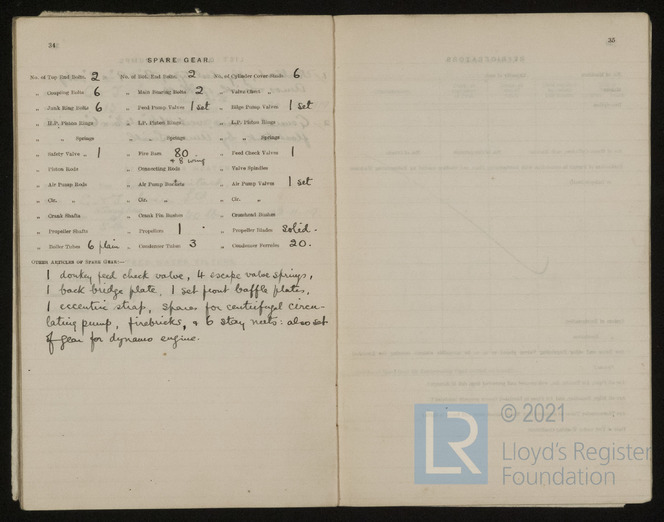 34
SPARE GEAR.
No. of Top End Bolts. 2 No. of Bot. End Bolts. 2 No. of Cylinder Cover Studs 6
„ Coupling Bolts 6 „ Main Bearing Bolts 2 „ Valve Chest „
„ Junk Ring Bolts 6 „ Feed Pump Valves 1 set „ Bilge Pump Valves 1 set
„ H.P. Piston Rings „ I.P. Piston Rings „ L.P. Piston Rings
„ „ Springs „ „ Springs „ „ Springs
„ Safety Valve „ 1 „ Fire Bars 80 „ Feed Check Valves 1
+ 8 wing
„ Piston Rods „ Connecting Rods „ Valve Spindles
„ Air Pump Rods „ Air Pump Buckets „ Air Pump Valves 1 set
„ Cir. „ „ Cir. „ „ Cir. „
„ Crank Shafts „ Crank Pin Bushes „ Crosshead Bushes
„ Propeller Shafts „ Propellers 1 „ Propeller Blades solid.
„ Boiler Tubes 6 plain „ Condenser Tubes 3 „ Condenser Ferrules 20.
OTHER ARTICLES OF SPARE GEAR:—
1 donkey feed check valve, 4 escape valve springs,
1 back bridge plate, 1 set front baffle plates,
1 eccentric strap, spares for centrifugal circu-
lating pump, firebricks, + 6 stay nuts: also set
of gear for dynamo engine.
35
© 2021
LR
Lloyd's Register
Foundation